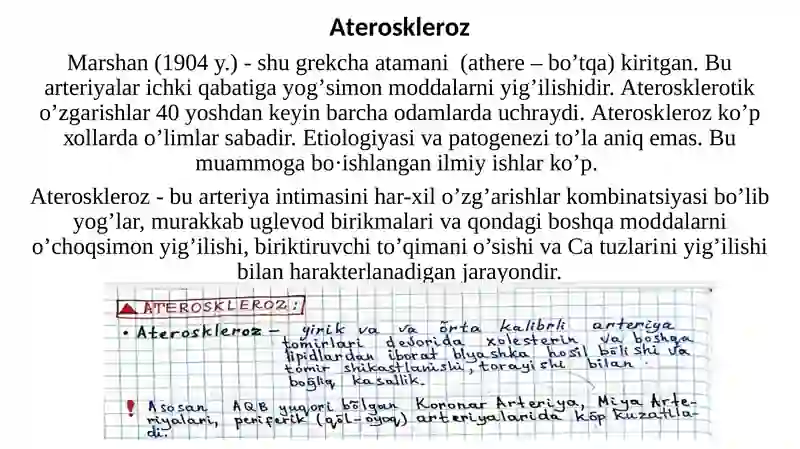 Ateroskleroz
Marshan (1904 y.) - shu grekcha atamani (athere – bo’tqa) kiritgan. Bu
arteriyalar ichki qabatiga yog’simon moddalarni yig’ilishidir. Aterosklerotik
o’zgarishlar 40 yoshdan keyin barcha odamlarda uchraydi. Ateroskleroz ko’p
xollarda o’limlar sabadir. Etiologiyasi va patogenezi to’la aniq emas. Bu
muammoga bo·ishlangan ilmiy ishlar ko’p.
Ateroskleroz - bu arteriya intimasini har-xil o’zg’arishlar kombinatsiyasi bo’lib
yog’lar, murakkab uglevod birikmalari va qondagi boshqa moddalarni
o’choqsimon yig’ilishi, biriktiruvchi to’qimani o’sishi va Ca tuzlarini yig’ilishi
bilan harakterlanadigan jarayondir.
ATEROSKLEROZ:
• Ateroskleroz – yirik va va õrta kalibrli arteriya
tomirlari devorida xolesterin va boshqa
lipidlardan iborat blyashka hosil bõlishi va
tomir shikastlanishi, torayishi bilan
bogliq kasallik.
! Asosan AQB yuqori bõlgan Koronar Arteriya, Miya Arte-
riyalari, periferik (qõl-oyoq) arteriyalarida kõp kuzatila-
di.